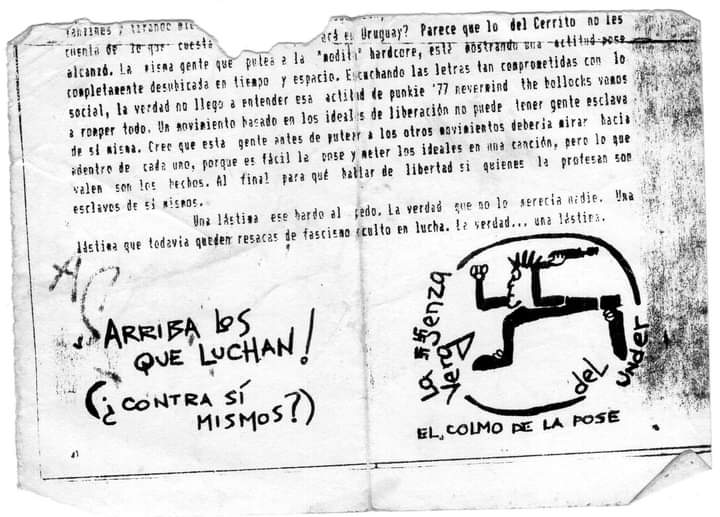 fanzines y
acá en Uruguay? Parece que lo del Cerrito no les
cuenta de lo que cuesta
alcanzó. La misma gente que putea a la "modita" hardcore, está mostrando una actitud pose
completamente desubicada en tiempo y espacio. Escuchando las letras tan comprometidas con lo
social, la verdad no llego a entender esa actitud de punkie '77 nevermind the bollocks vamos
a romper todo. Un movimiento basado en los ideales de liberación no puede tener gente esclava
de sí misma. Creo que esta gente antes de putear a los otros movimientos debería mirar hacia
adentro de cada uno, porque es fácil la pose y meter los ideales en una canción, pero lo que
valen son los hechos. Al final para qué hablar de libertad si quienes la profesan son
esclavos de si mismos.
Una lástima ese bardo al pedo. La verdad que no lo merecía nadie. Una
lástima que todavía queden resacas de fascismo oculto en lucha. La verdad... una lástima.
ARRIBA LOS
QUE LUCHAN!
(¿CONTRA SÍ
MISMOS?)
La
verd
del
under
EL COLMO DE LA POSE